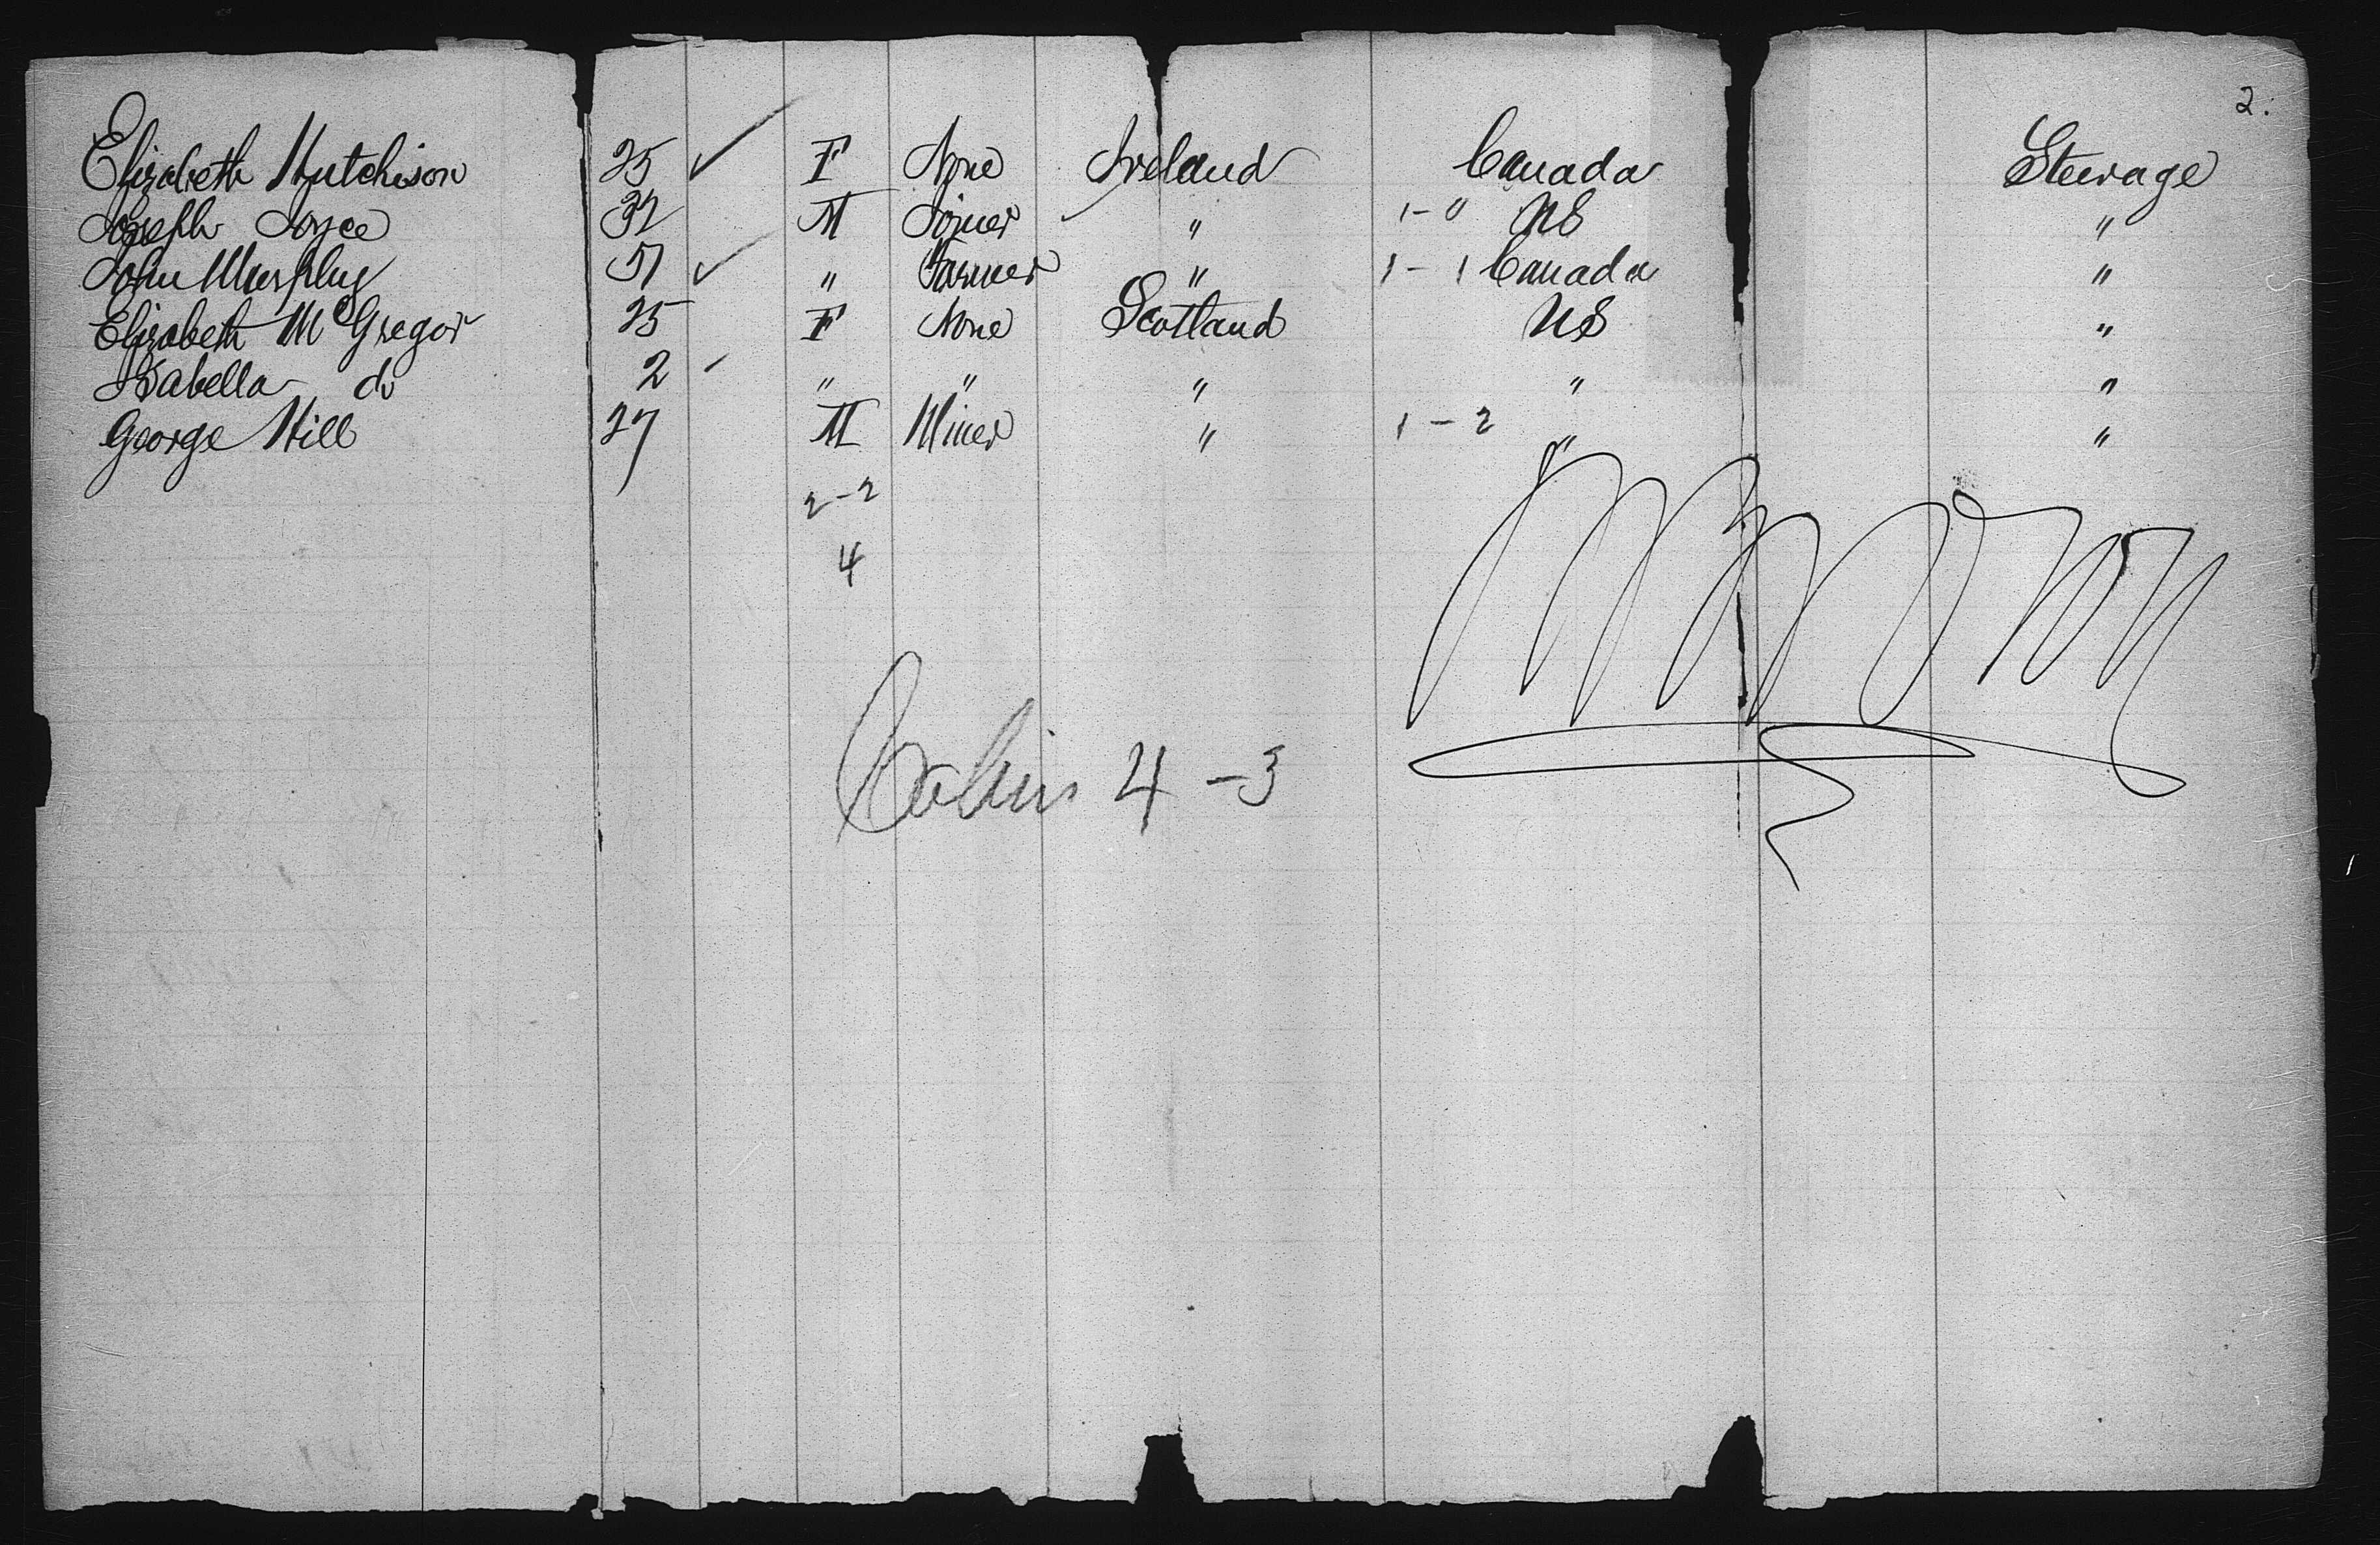 2.
Elizabeth Hutchison 25 ✓ F None Ireland Canada Steerage
Joseph Joyce 32 M Joiner " 1-" US "
John Murphy 51 ✓ " Farmer " 1-1 Canada "
Elizabeth McGregor 25 F None Scotland US "
Isabella do 2 - " " " " "
George Hill 27 M Miner " 1-2 " "
2-2
4
Cabin 4-3